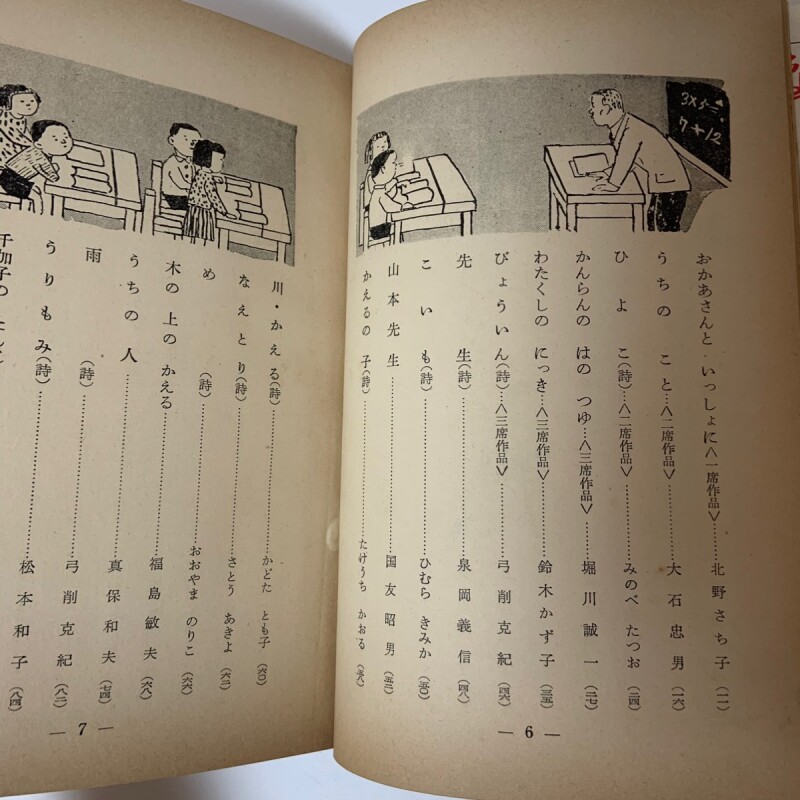 3×5=
7+12
おかあさんと いっしょに〈一席作品〉……北野さち子(一一)
うちの こと…〈二席作品〉……大石忠男(一六)
ひよこ(詩)…〈二席作品〉……みのべ たつお(二四)
かんらんの はの つゆ…〈三席作品〉……堀川誠一(二七)
わたくしの にっき…〈三席作品〉……鈴木かず子(三五)
びょういん(詩)…〈三席作品〉……弓削克紀(四六)
先生(詩)……泉岡義信(四八)
こいも(詩)……ひむら きみか(五〇)
山本先生……国友昭男(五二)
かえるの 子(詩)……たけうち かおる(五八)
— 6 —
川・かえる(詩)……かどた とも子(六〇)
なえとり(詩)……さとう あきよ(六二)
め(詩)……おおやま のりこ(六六)
木の上の かえる……福島敏夫(六八)
うちの人……真保和夫(七四)
雨(詩)……弓削克紀(八二)
うりもみ(詩)……松本和子(八四)
千加子の
— 7 —